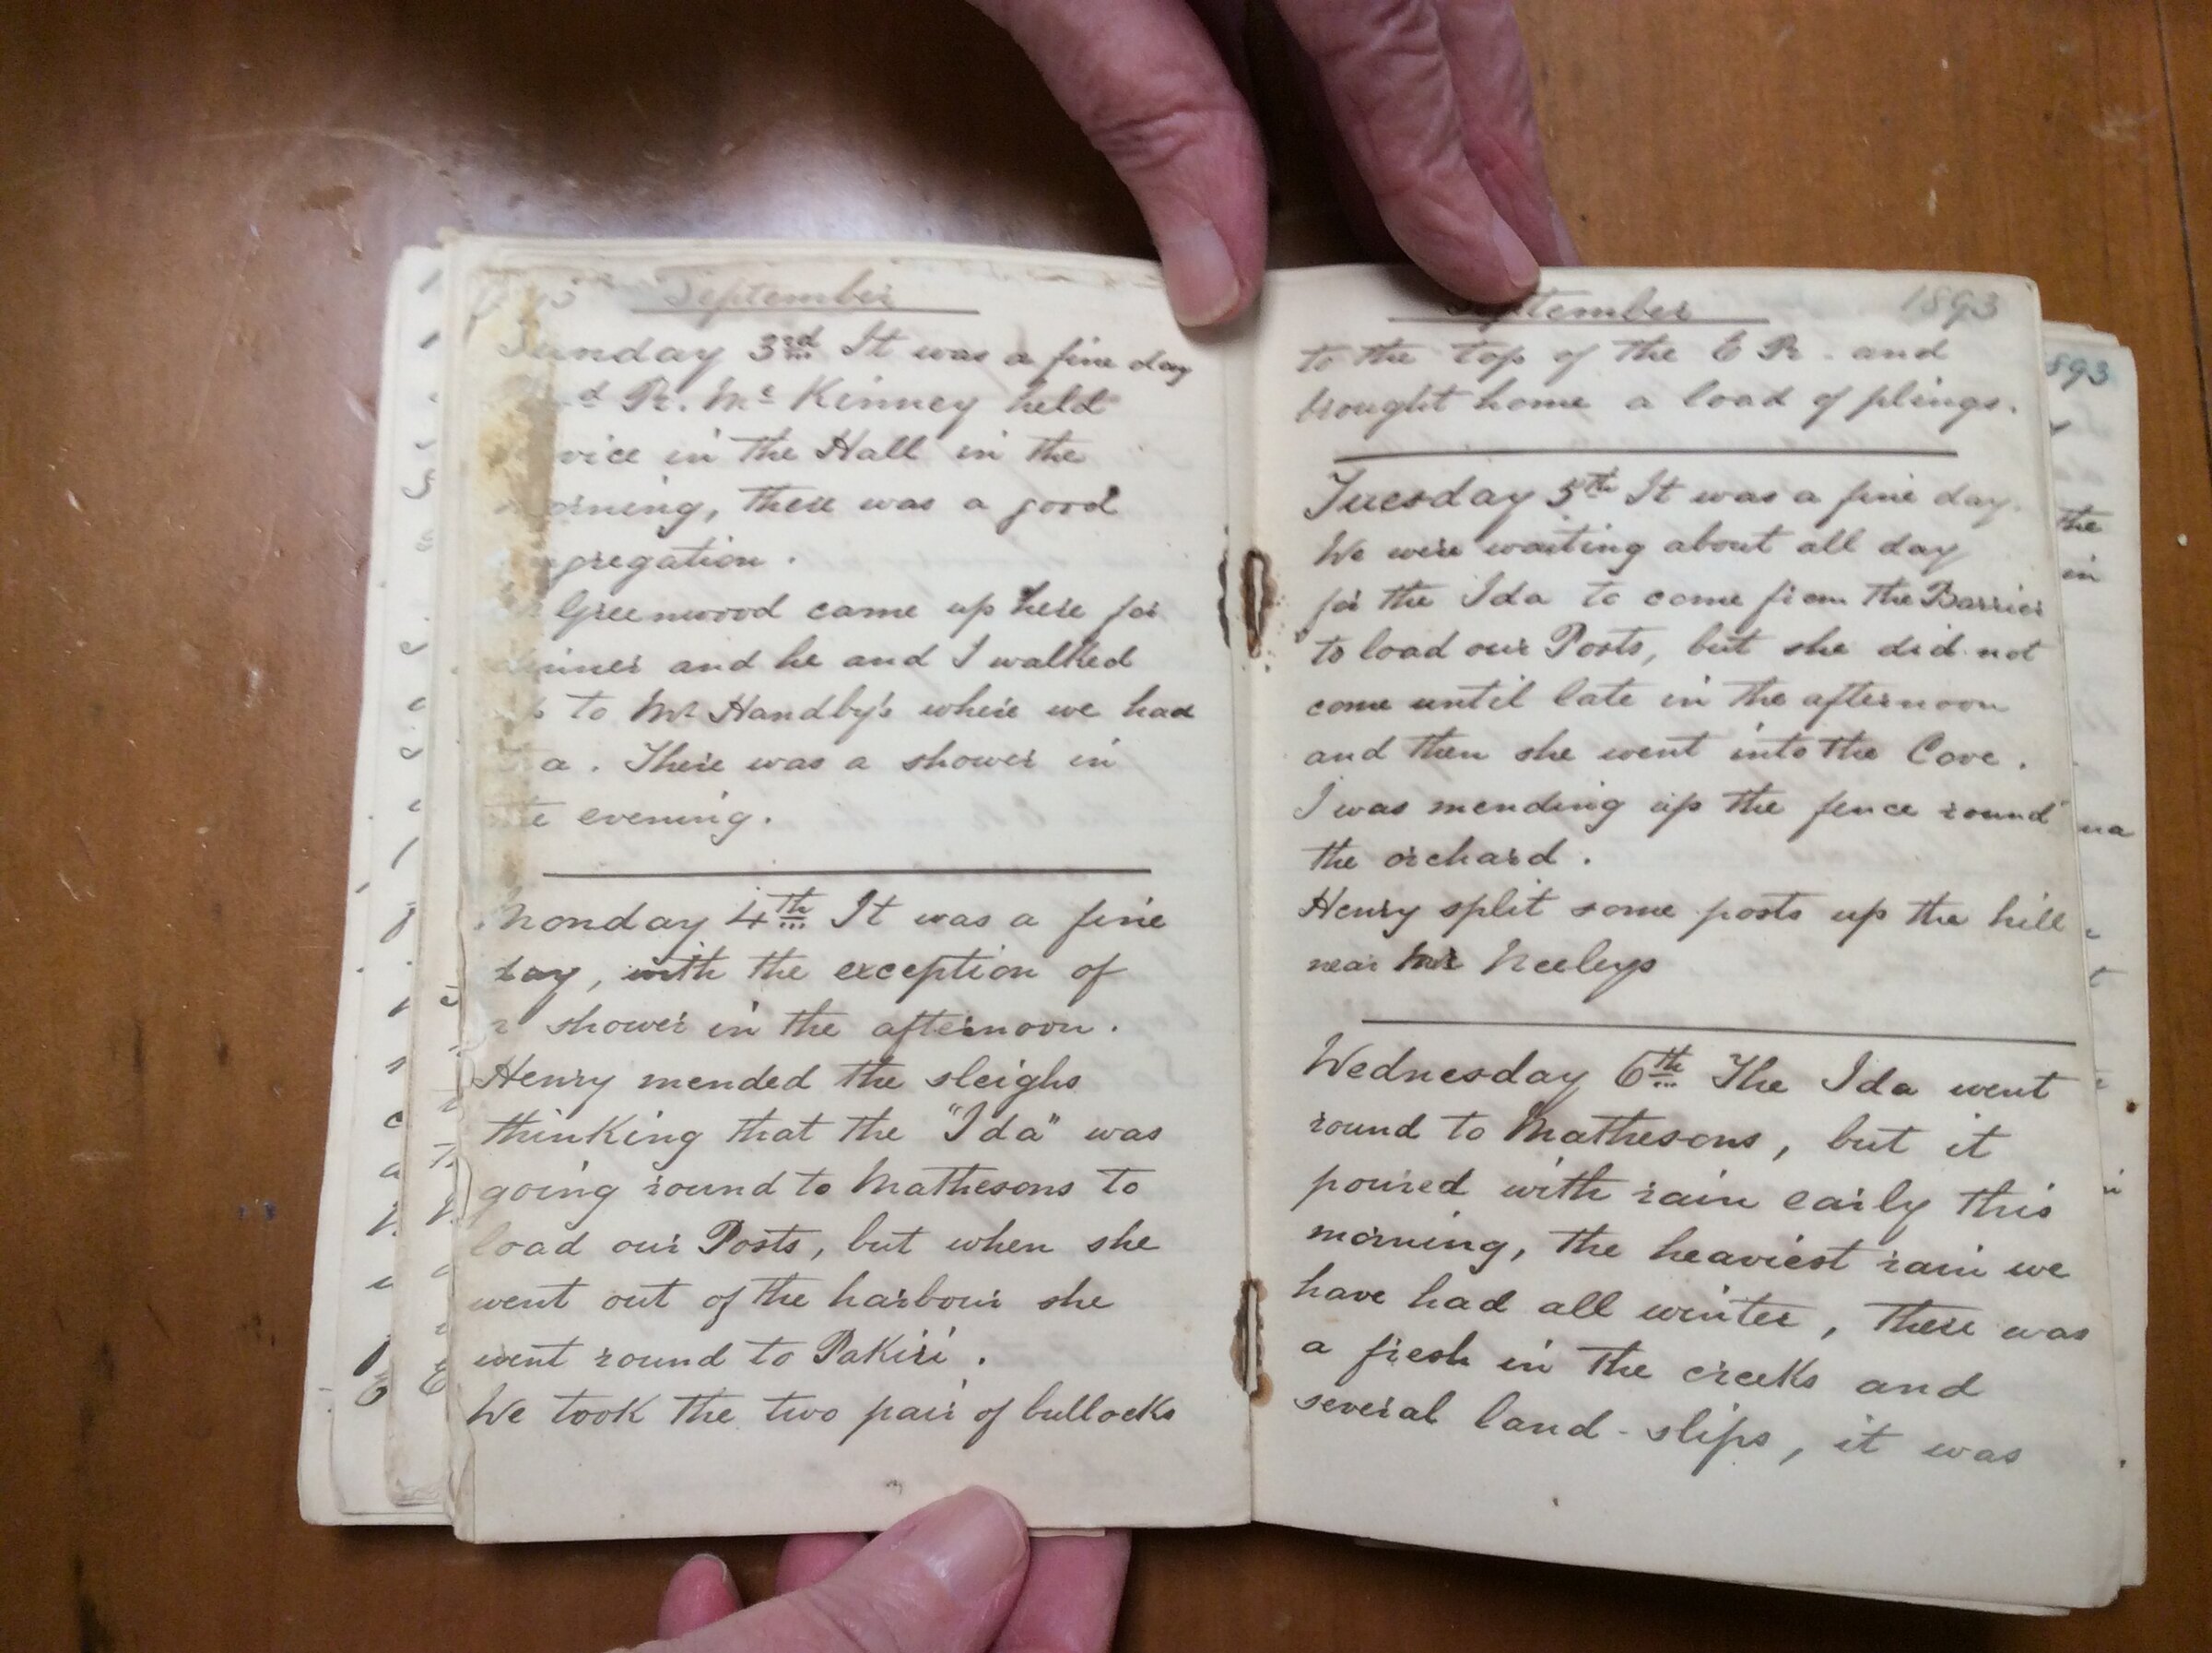 September
Sunday 3rd It was a fine day
R. Mc Kinney held
vice in the Hall in the
morning, there was a good
gregation.
Greenwood came up here for
dinner and he and I walked
to Mr Handby's where we had
a. There was a shower in
the evening.
Monday 4th It was a fine
day, with the exception of
a shower in the afternoon.
Henry mended the sleighs
thinking that the "Ida" was
going round to Mathesons to
load our Posts, but when she
went out of the harbour she
went round to Pakiri.
We took the two pair of bullocks
September 1893
to the top of the and
brought home a load of plings.
Tuesday 5th It was a fine day.
We were waiting about all day
for the Ida to come from the Barrier
to load our Posts, but she did not
come until late in the afternoon
and then she went into the Cove.
I was mending up the fence round
the orchard.
Henry split some posts up the hill
near Neeleys
Wednesday 6th The Ida went
round to Mathesons, but it
poured with rain early this
morning, the heaviest rain we
have had all winter, there was
a fresh in the creeks and
several land-slips, it was
893
the
in